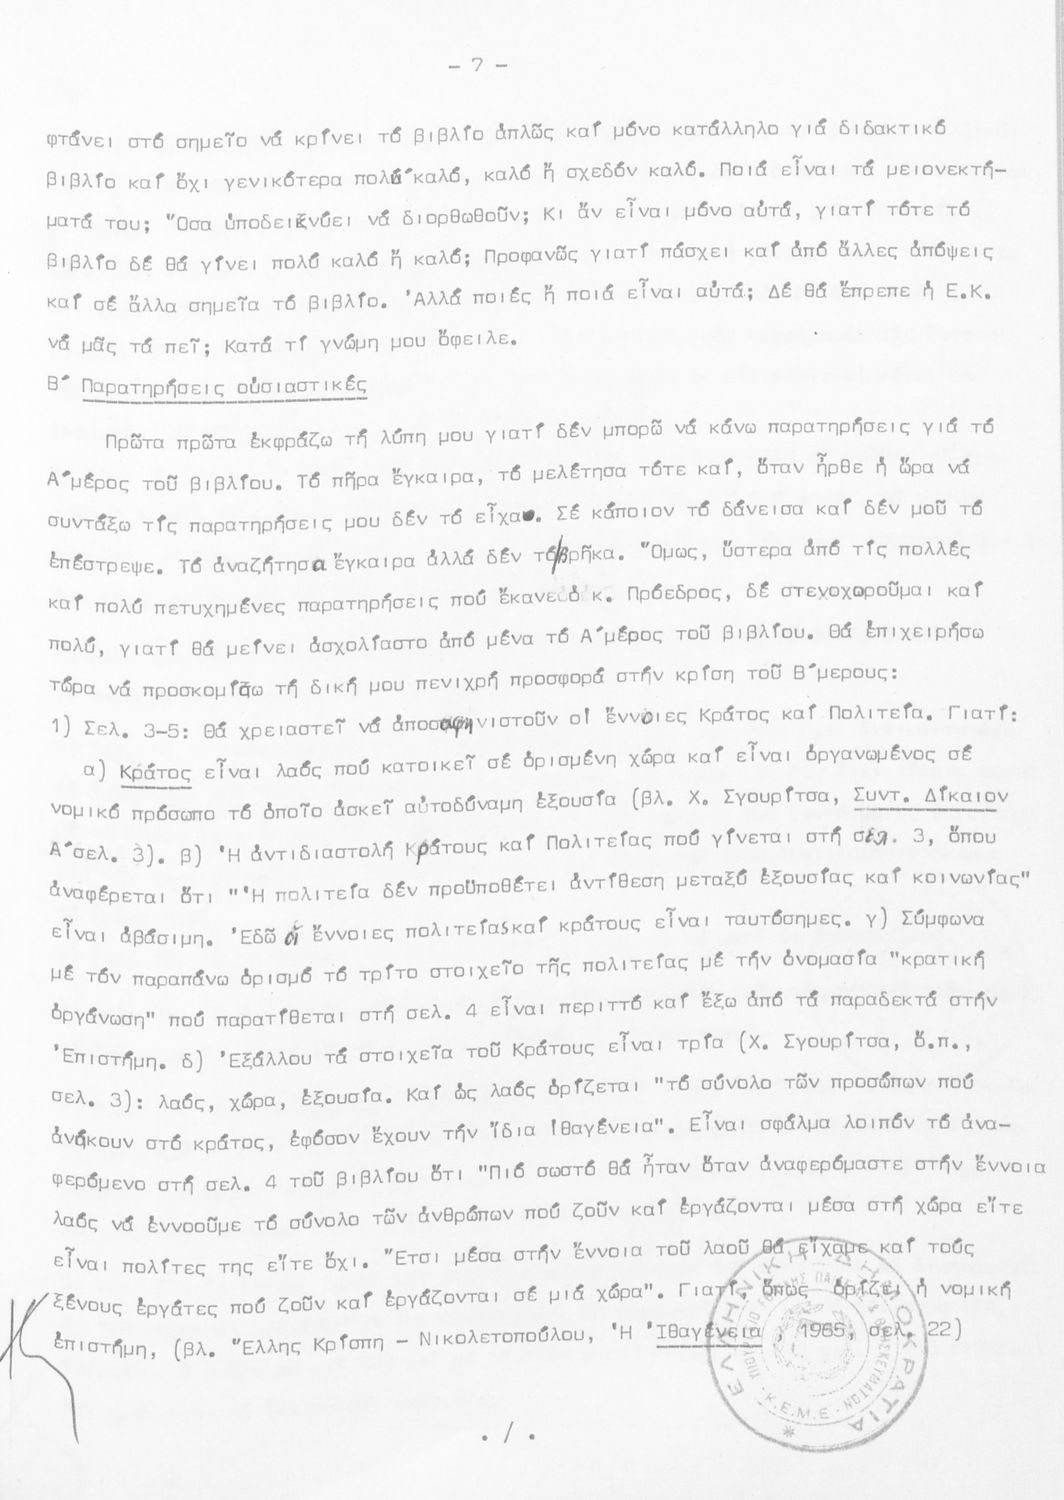 - 7 -
φτάνει στό σημεῖο νά κρίνει τό βιβλίο ἁπλῶς καί μόνο κατάλληλο γιά διδακτικό
βιβλίο καί ὄχι γενικότερα πολύ καλό, καλό ἤ σχεδόν καλό. Ποιά εἶναι τά μειονεκτή-
ματά του; Ὅσα ὑποδεικνύει νά διορθωθοῦν; Κι ἄν εἶναι μόνο αὐτά, γιατί τότε τό
βιβλίο δέ θά γίνει πολύ καλό ἤ καλό; Προφανῶς γιατί πάσχει καί ἀπό ἄλλες ἀπόψεις
καί σέ ἄλλα σημεῖα τό βιβλίο. Ἀλλά ποιές ἤ ποιά εἶναι αὐτά; Δέ θά ἔπρεπε ἡ Ε.Κ.
νά μᾶς τά πεῖ; Κατά τί γνώμη μου ὄφειλε.
Β´ Παρατηρήσεις οὐσιαστικές
Πρῶτα πρῶτα ἐκφράζω τή λύπη μου γιατί δέν μπορῶ νά κάνω παρατηρήσεις γιά τό
Α´μέρος τοῦ βιβλίου. Τό πῆρα ἔγκαιρα, τό μελέτησα τότε καί, ὅταν ἦρθε ἡ ὥρα νά
συντάξω τίς παρατηρήσεις μου δέν τό εἶχα. Σέ κάποιον τό δάνεισα καί δέν μοῦ τό
ἐπέστρεψε. Τό ἀναζήτησα ἔγκαιρα ἀλλά δέν τό βρῆκα. Ὅμως, ὕστερα ἀπό τίς πολλές
καί πολύ πετυχημένες παρατηρήσεις πού ἔκανε ὁ κ. Πρόεδρος, δέ στενοχωροῦμαι καί
πολύ, γιατί θά μείνει ἀσχολίαστο ἀπό μένα τό Α´μέρος τοῦ βιβλίου. Θά ἐπιχειρήσω
τώρα νά προσκομίσω τή δική μου πενιχρή προσφορά στήν κρίση τοῦ Β´μερους:
1) Σελ. 3-5: Θά χρειαστεῖ νά ἀποσαφηνιστοῦν οἱ ἔννοιες Κράτος καί Πολιτεία. Γιατί:
α) Κράτος εἶναι λαός πού κατοικεῖ σέ ὁρισμένη χώρα καί εἶναι ὀργανωμένος σέ
νομικό πρόσωπο τό ὁποῖο ἀσκεῖ αὐτοδύναμη ἐξουσία (βλ. Χ. Σγουρίτσα, Συντ. Δίκαιον
Α´σελ. 3). β) Ἡ ἀντιδιαστολή Κράτους καί Πολιτείας πού γίνεται στή σελ. 3, ὅπου
ἀναφέρεται ὅτι "Ἡ πολιτεία δέν προϋποθέτει ἀντίθεση μεταξύ ἐξουσίας καί κοινωνίας"
εἶναι ἀβάσιμη. Ἐδῶ οἱ ἔννοιες πολιτείας καί κράτους εἶναι ταυτόσημες. γ) Σύμφωνα
μέ τόν παραπάνω ὁρισμό τό τρίτο στοιχεῖο τῆς πολιτείας μέ τήν ὀνομασία "κρατική
ὀργάνωση" πού παρατίθεται στή σελ. 4 εἶναι περιττό καί ἔξω ἀπό τά παραδεκτά στήν
Ἐπιστήμη. δ) Ἐξάλλου τά στοιχεῖα τοῦ Κράτους εἶναι τρία (Χ. Σγουρίτσα, ὅ.π.,
σελ. 3): λαός, χώρα, ἐξουσία. Καί ὡς λαός ὁρίζεται "τό σύνολο τῶν προσώπων πού
ἀνήκουν στό κράτος, ἐφόσον ἔχουν τήν ἴδια ἰθαγένεια". Εἶναι σφάλμα λοιπόν τό ἀνα-
φερόμενο στή σελ. 4 τοῦ βιβλίου ὅτι "Πιό σωστό θά ἦταν ὅταν ἀναφερόμαστε στήν ἔννοια
λαός νά ἐννοοῦμε τό σύνολο τῶν ἀνθρώπων πού ζοῦν καί ἐργάζονται μέσα στή χώρα εἴτε
εἶναι πολίτες της εἴτε ὄχι. Ἔτσι μέσα στήν ἔννοια τοῦ λαοῦ θά εἴχαμε καί τούς
ξένους ἐργάτες πού ζοῦν καί ἐργάζονται σέ μιά χώρα". Γιατί, ὅπως ὁρίζει ἡ νομική
ἐπιστήμη, (βλ. Ἕλλης Κρίσπη - Νικολετοπούλου, Ἡ Ἰθαγένεια , 1965, σελ. 22)
ΕΛΛΗΝΙΚΗ ΔΗΜΟΚΡΑΤΙΑ
& ΘΡΗΣΚΕΥΜΑΤΩΝ
Κ.Ε.Μ.Ε
. / .